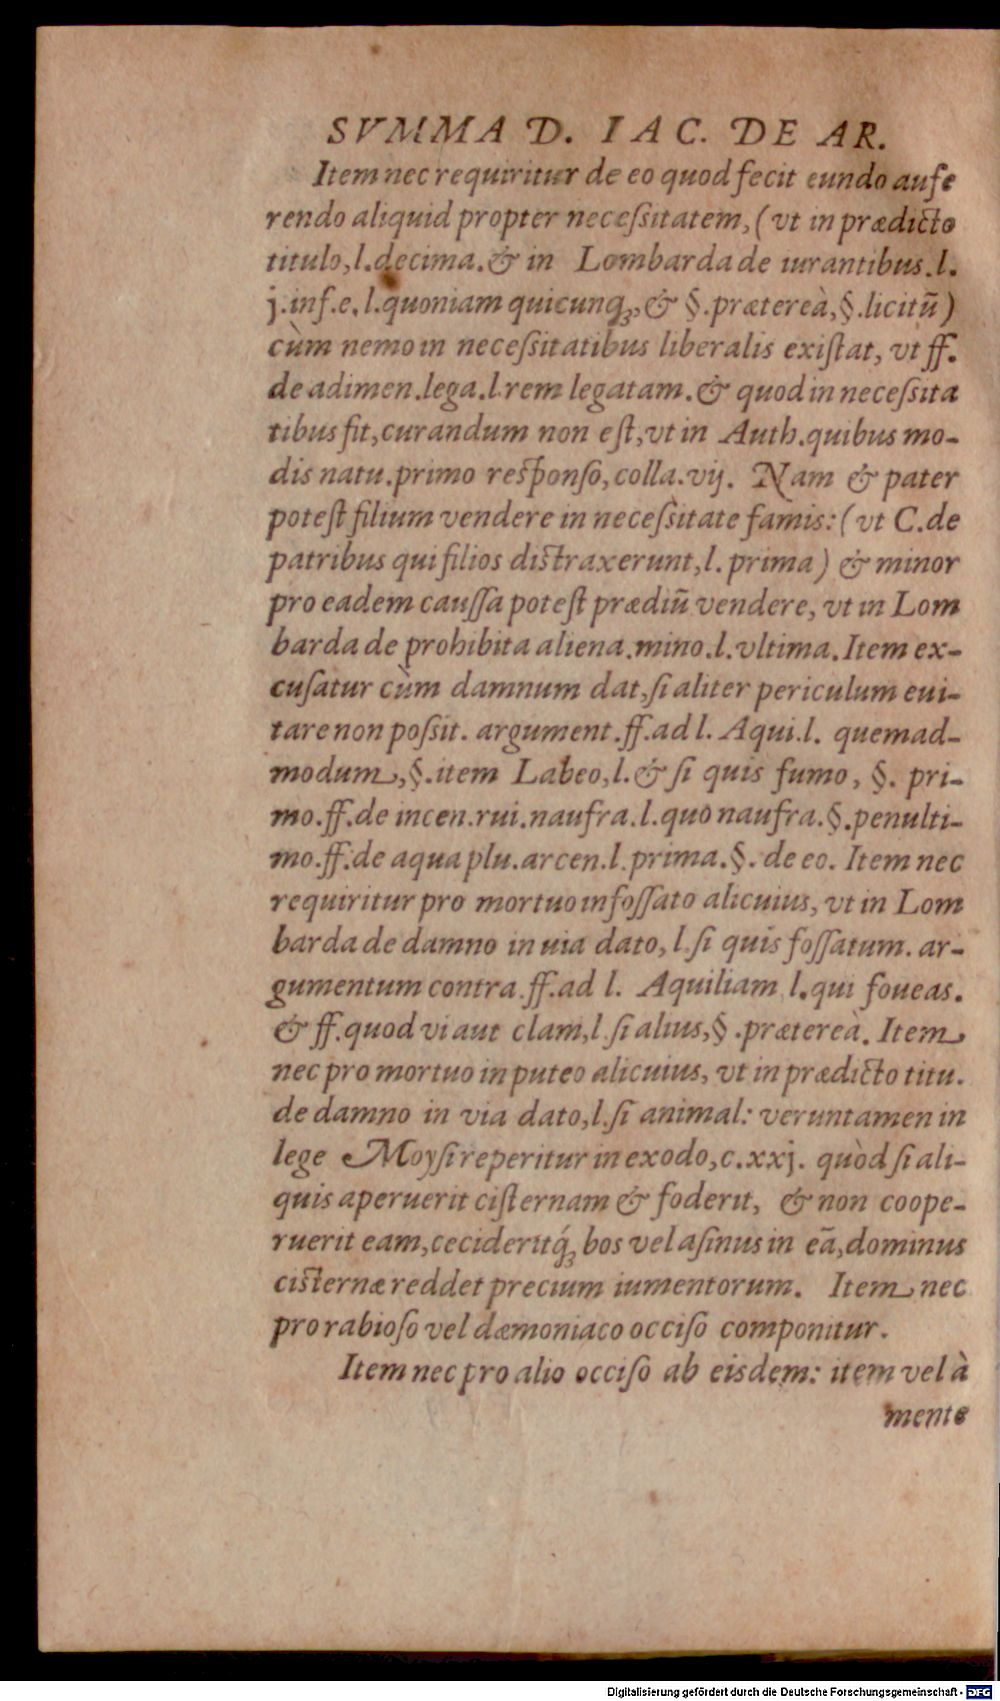 SVMMA D. IAC. DE AR.
Item nec requiritur de eo quod fecit eundo aufe
rendo aliquid propter neceſsitatem, (vt in prædicto
titulo, l. decima. & in Lombarda de iurantibus. l.
j. inf. e. l. quoniam quicunq;, & §. prætereà, §. licitũ)
cùm nemo in neceſsitatibus liberalis exiſtat, vt ff.
de adimen. lega. l. rem legatam. & quod in neceſsita
tibus fit, curandum non eſt, vt in Auth. quibus mo-
dis natu. primo reſponſo, colla. vij. Nam & pater
poteſt filium vendere in neceſsitate famis: (vt C. de
patribus qui filios diſtraxerunt, l. prima) & minor
pro eadem cauſſa poteſt prædiũ vendere, vt in Lom
barda de prohibita aliena. mino. l. vltima. Item ex-
cuſatur cùm damnum dat, ſi aliter periculum eui-
tare non poſsit. argument. ff. ad l. Aqui. l. quemad-
modum, §. item Labeo, l. & ſi quis fumo, §. pri-
mo. ff. de incen. rui. naufra. l. quo naufra. §. penulti-
mo. ff. de aqua plu. arcen. l. prima. §. de eo. Item nec
requiritur pro mortuo in foſſato alicuius, vt in Lom
barda de damno in uia dato, l. ſi quis foſſatum. ar-
gumentum contra. ff. ad l. Aquiliam l. qui foueas.
& ff. quod vi aut clam, l. ſi alius, §. prætereà. Item
nec pro mortuo in puteo alicuius, vt in prædicto titu.
de damno in via dato, l. ſi animal: veruntamen in
lege Moyſi reperitur in exodo, c. xxj. quòd ſi ali-
quis aperuerit ciſternam & foderit, & non coope-
ruerit eam, cecideritq́; bos vel aſinus in eã, dominus
ciſternæ reddet precium iumentorum. Item nec
pro rabioſo vel dæmoniaco occiſo componitur.
Item nec pro alio occiſo ab eisdem: item vel à
mente
Digitalisierung gefördert durch die Deutsche Forschungsgemeinschaft - DFG